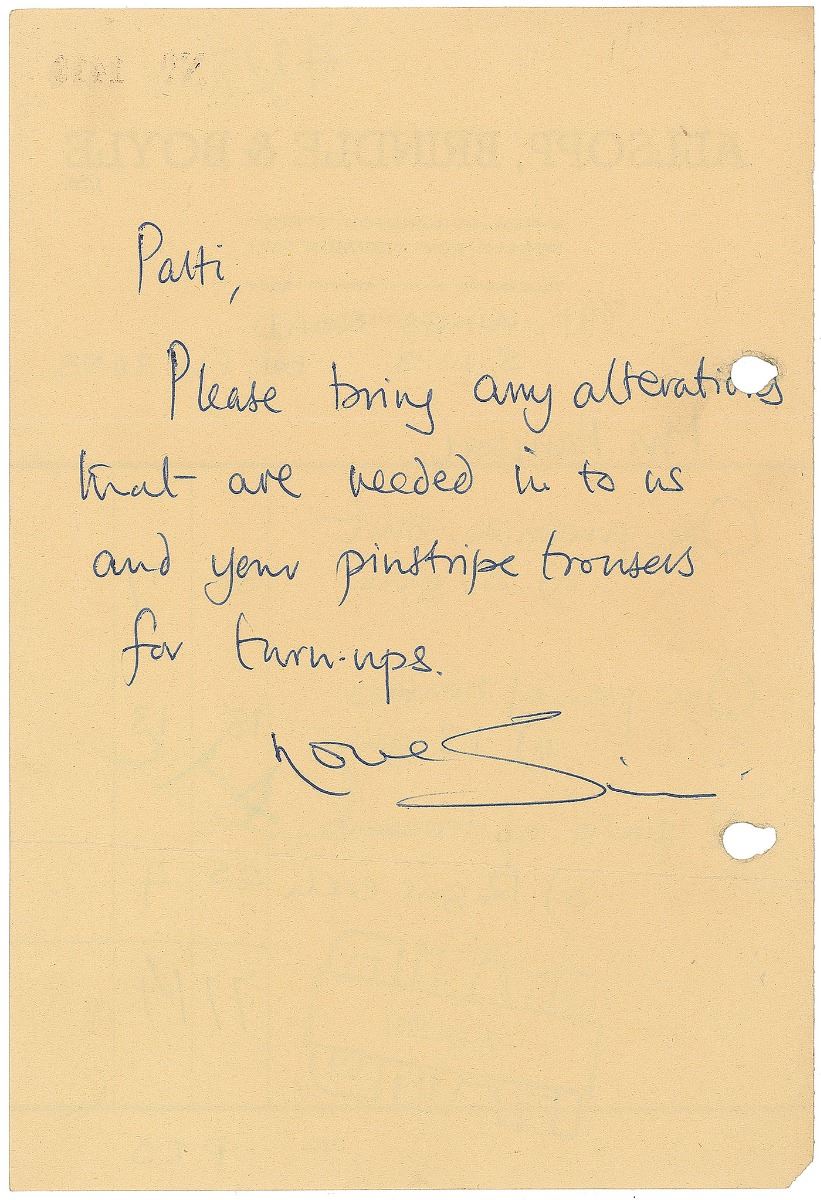 Patti,
Please bring any alterations
that are needed in to us
and your pinstripe trousers
for turn-ups.
Love
ALLSOPP, BRINDLE & BOYLE